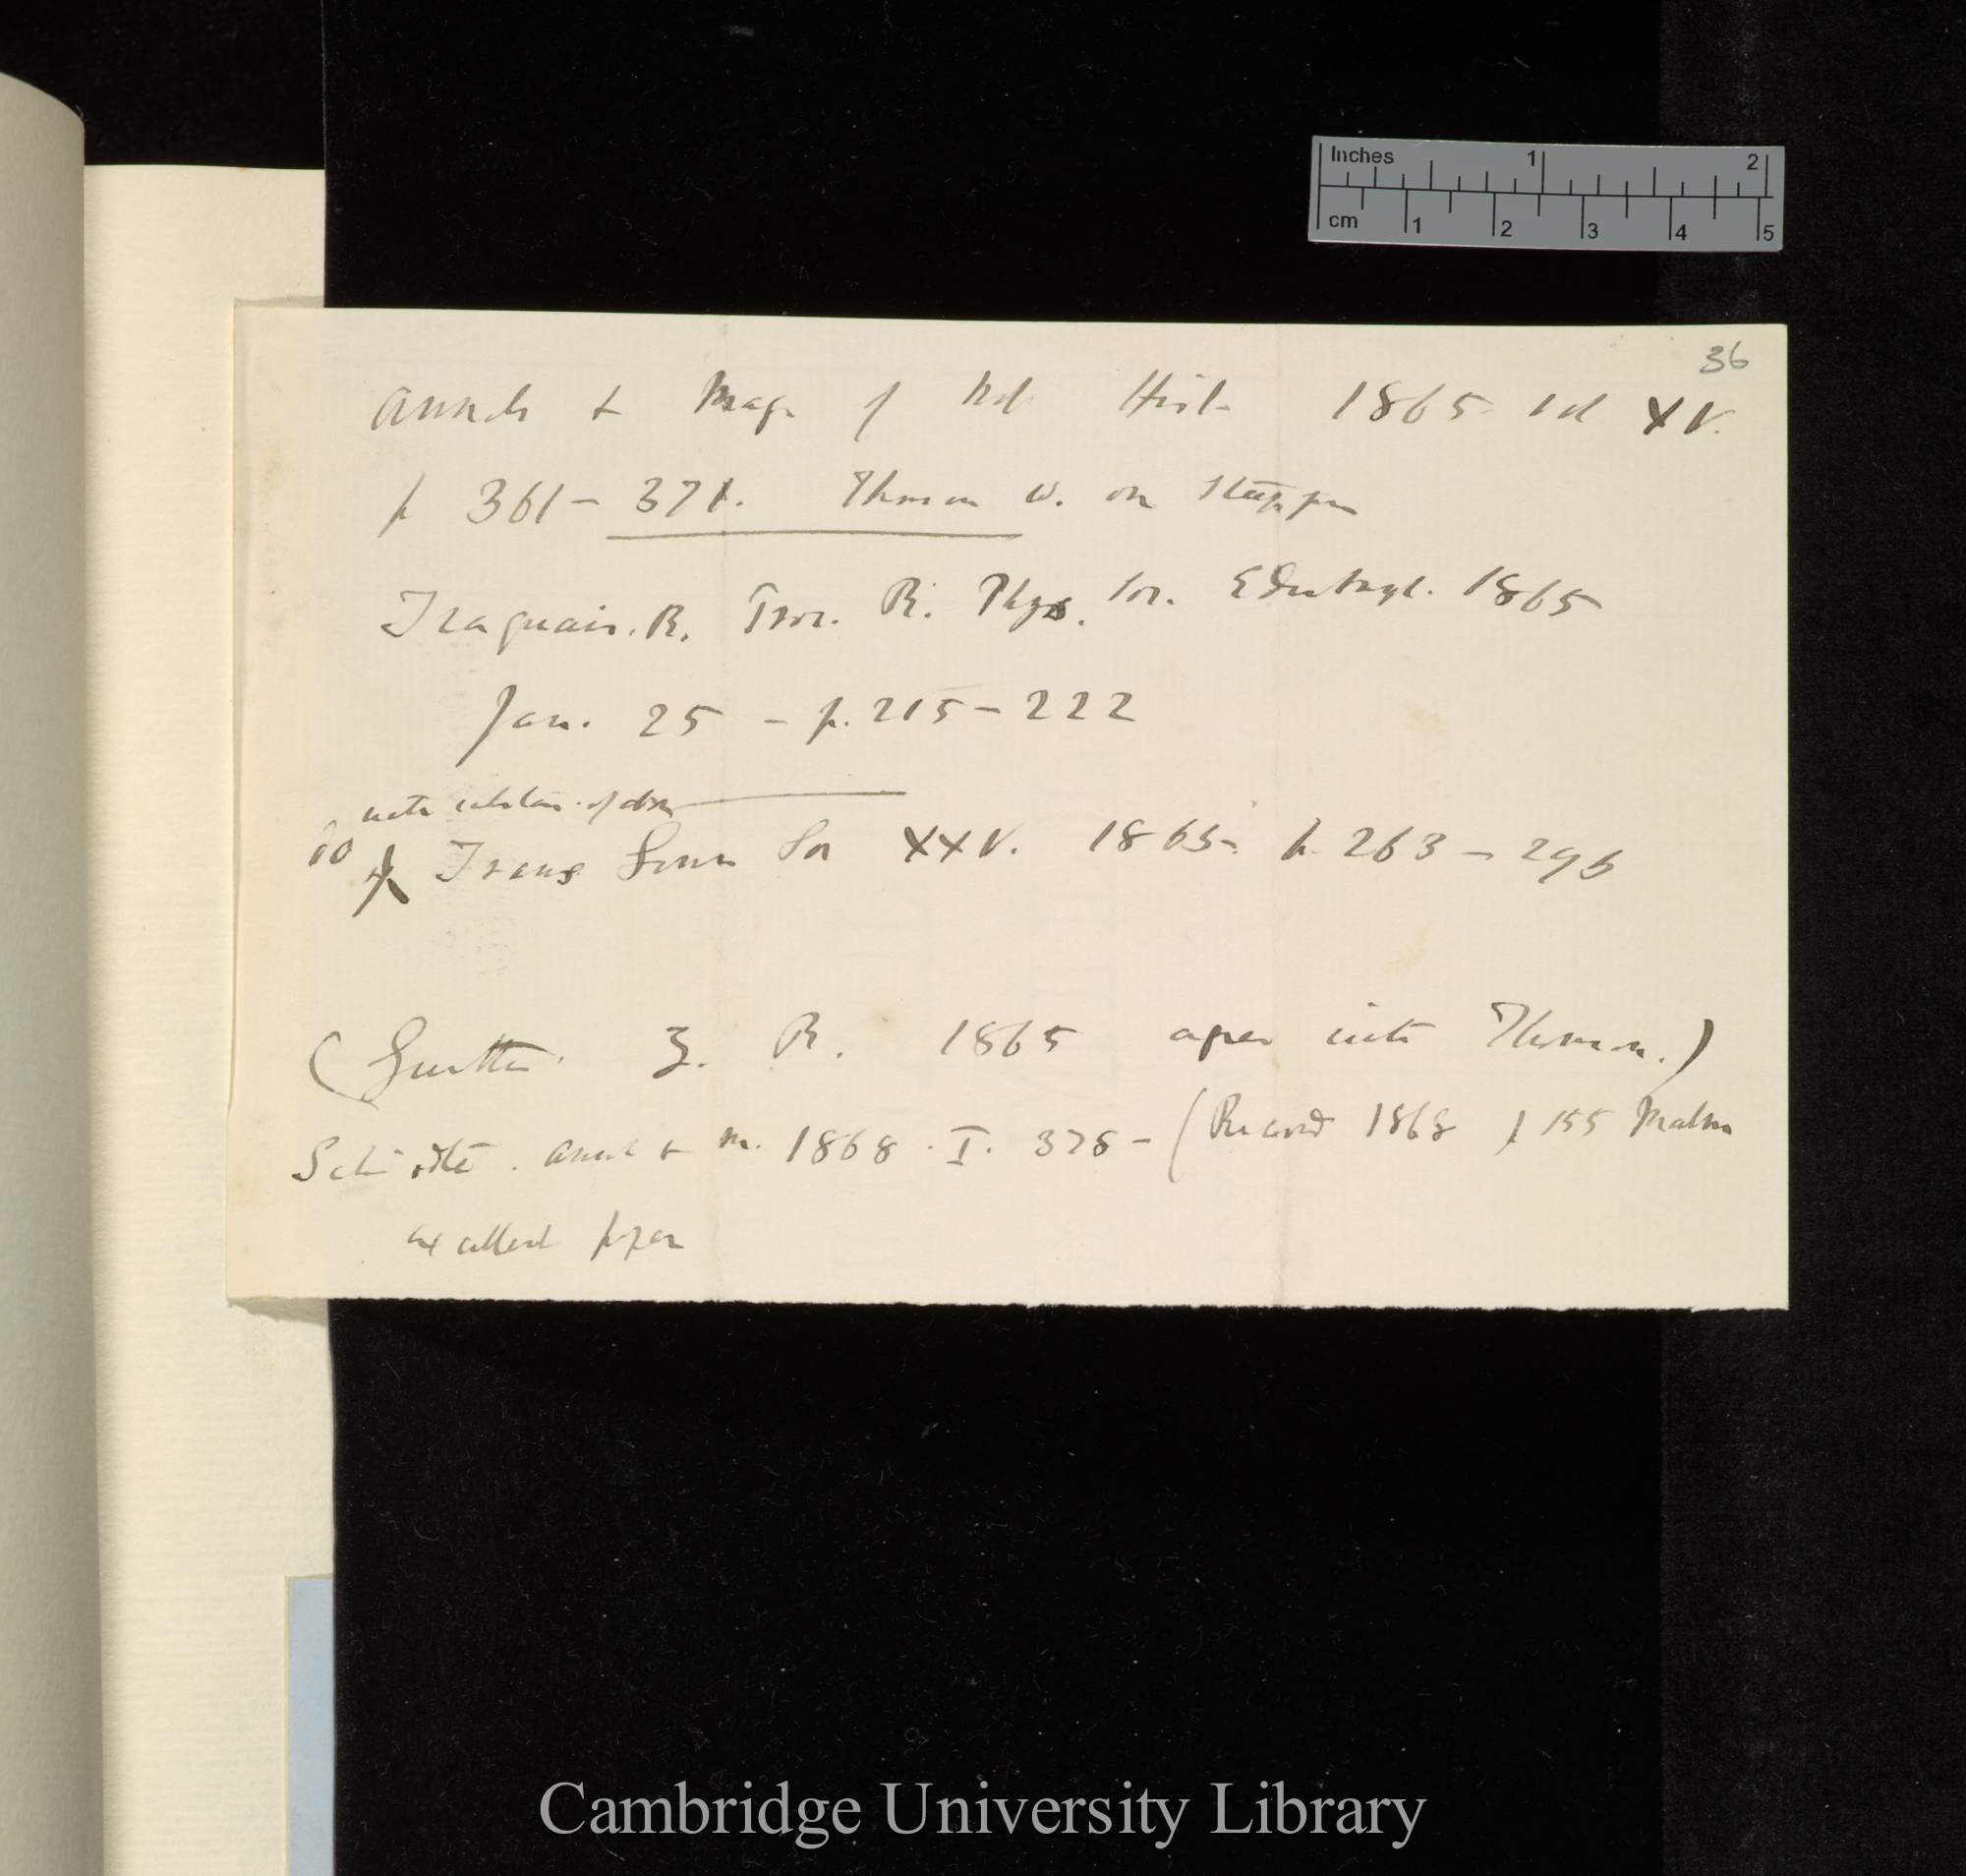 Inches 1 2
cm 1 2 3 4 5
36
Annals & Mag of Nat Hist 1865 vol XV.
p 361-371. Thomson W. on
Traquair. R. Proc. R. Phys. Soc. Edinburgh. 1865
Jan. 25 - p. 215-222
with of
do Trans Linn Soc XXV. 1865. p. 263-296
(Gunther Z. R. 1865 agrees with Thomson.)
Schiodte. Annals & M. 1868. I. 378- (Record 1868 p 155 Malm
excellent paper
Cambridge University Library